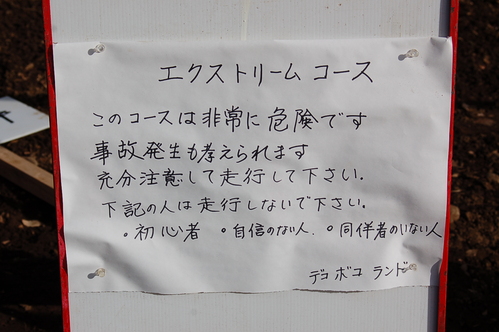 エクストリーム コース
このコースは非常に危険です
事故発生も考えられます
充分注意して走行して下さい.
下記の人は走行しないで下さい.
。初心者 。自信のない人. 。同伴者のいない人
デコ ボコ ランド